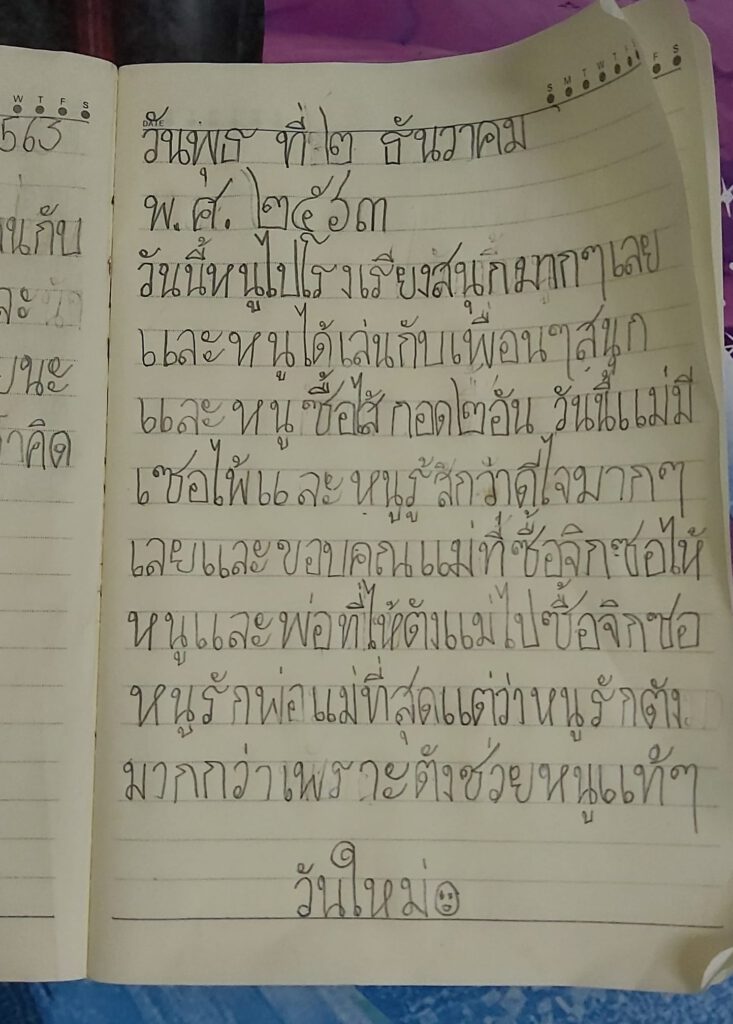 W T F S
563
นกับ
ละ
ยนะ
คิด
S M T W T F S
DATE
วันพุธ ที่ ๒ ธันวาคม
พ.ศ. ๒๕๖๓
วันนี้หนูไปโรงเรียงสนุกมากๆเลย
และหนูได้เล่นกับเพื่อนๆสนุก
และหนูซื้อไส้กอด๒อัน วันนี้แม่มี
เซอไพ้และหนูรู้สึกว่าดีใจมากๆ
เลยและขอบคุณแม่ที่ซื้อจิกซอให้
หนูและพ่อที่ให้ตังแม่ไปซื้อจิกซอ
หนูรักพ่อแม่ที่สุดแต่ว่าหนูรักตัง
มากกว่าเพราะตังช่วยหนูแท้ๆ
วันใหม่